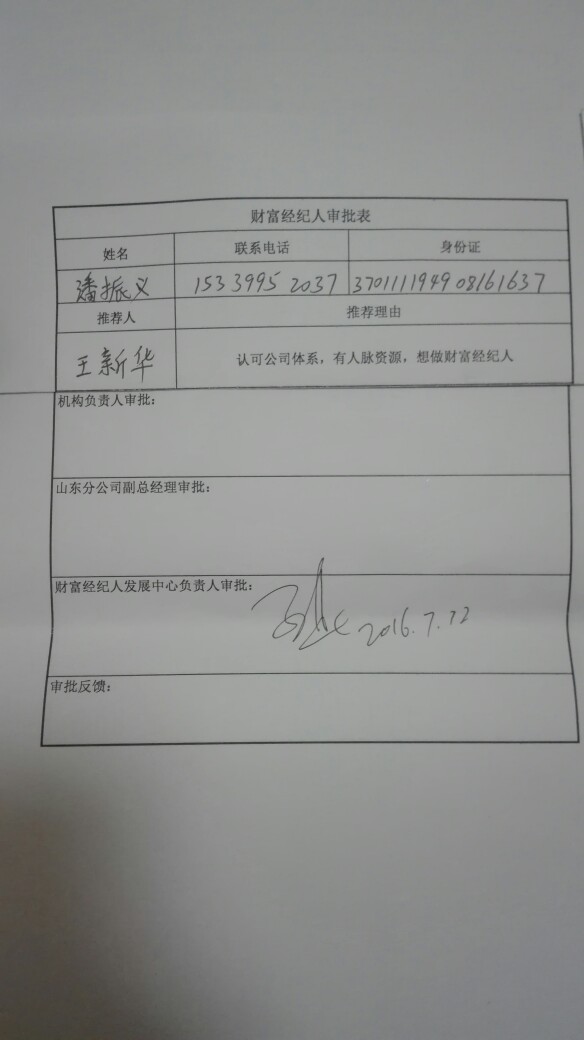 财富经纪人审批表
姓名 联系电话 身份证
潘振义 15339952037 370111194908161637
推荐人 推荐理由
王新华 认可公司体系，有人脉资源，想做财富经纪人
机构负责人审批：
山东分公司副总经理审批：
财富经纪人发展中心负责人审批：
2016.7.
审批反馈：